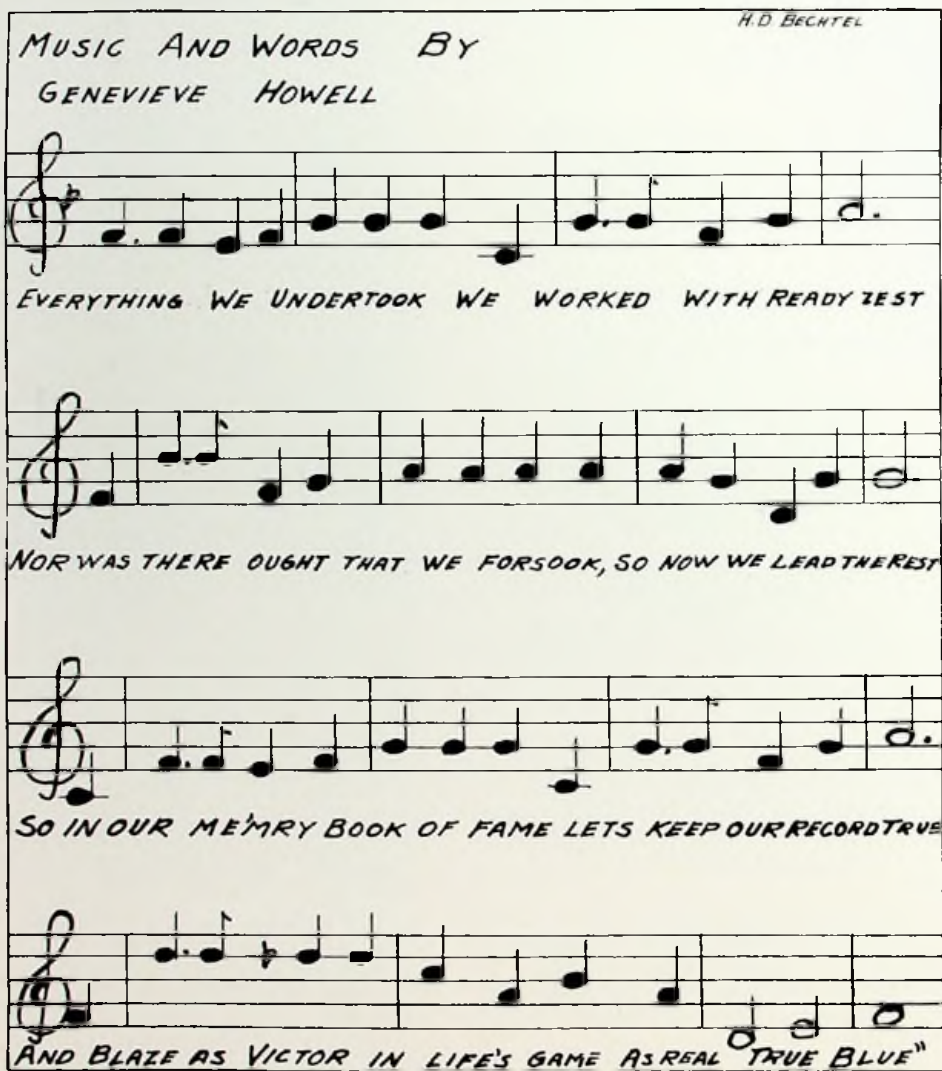 H.D. BECHTEL
MUSIC AND WORDS BY
GENEVIEVE HOWELL
EVERYTHING WE UNDERTOOK WE WORKED WITH READY ZEST
NOR WAS THERE OUGHT THAT WE FORSOOK, SO NOW WE LEAD THE REST
SO IN OUR ME'MRY BOOK OF FAME LETS KEEP OUR RECORD TRUE
AND BLAZE AS VICTOR IN LIFE'S GAME AS REAL TRUE BLUE"